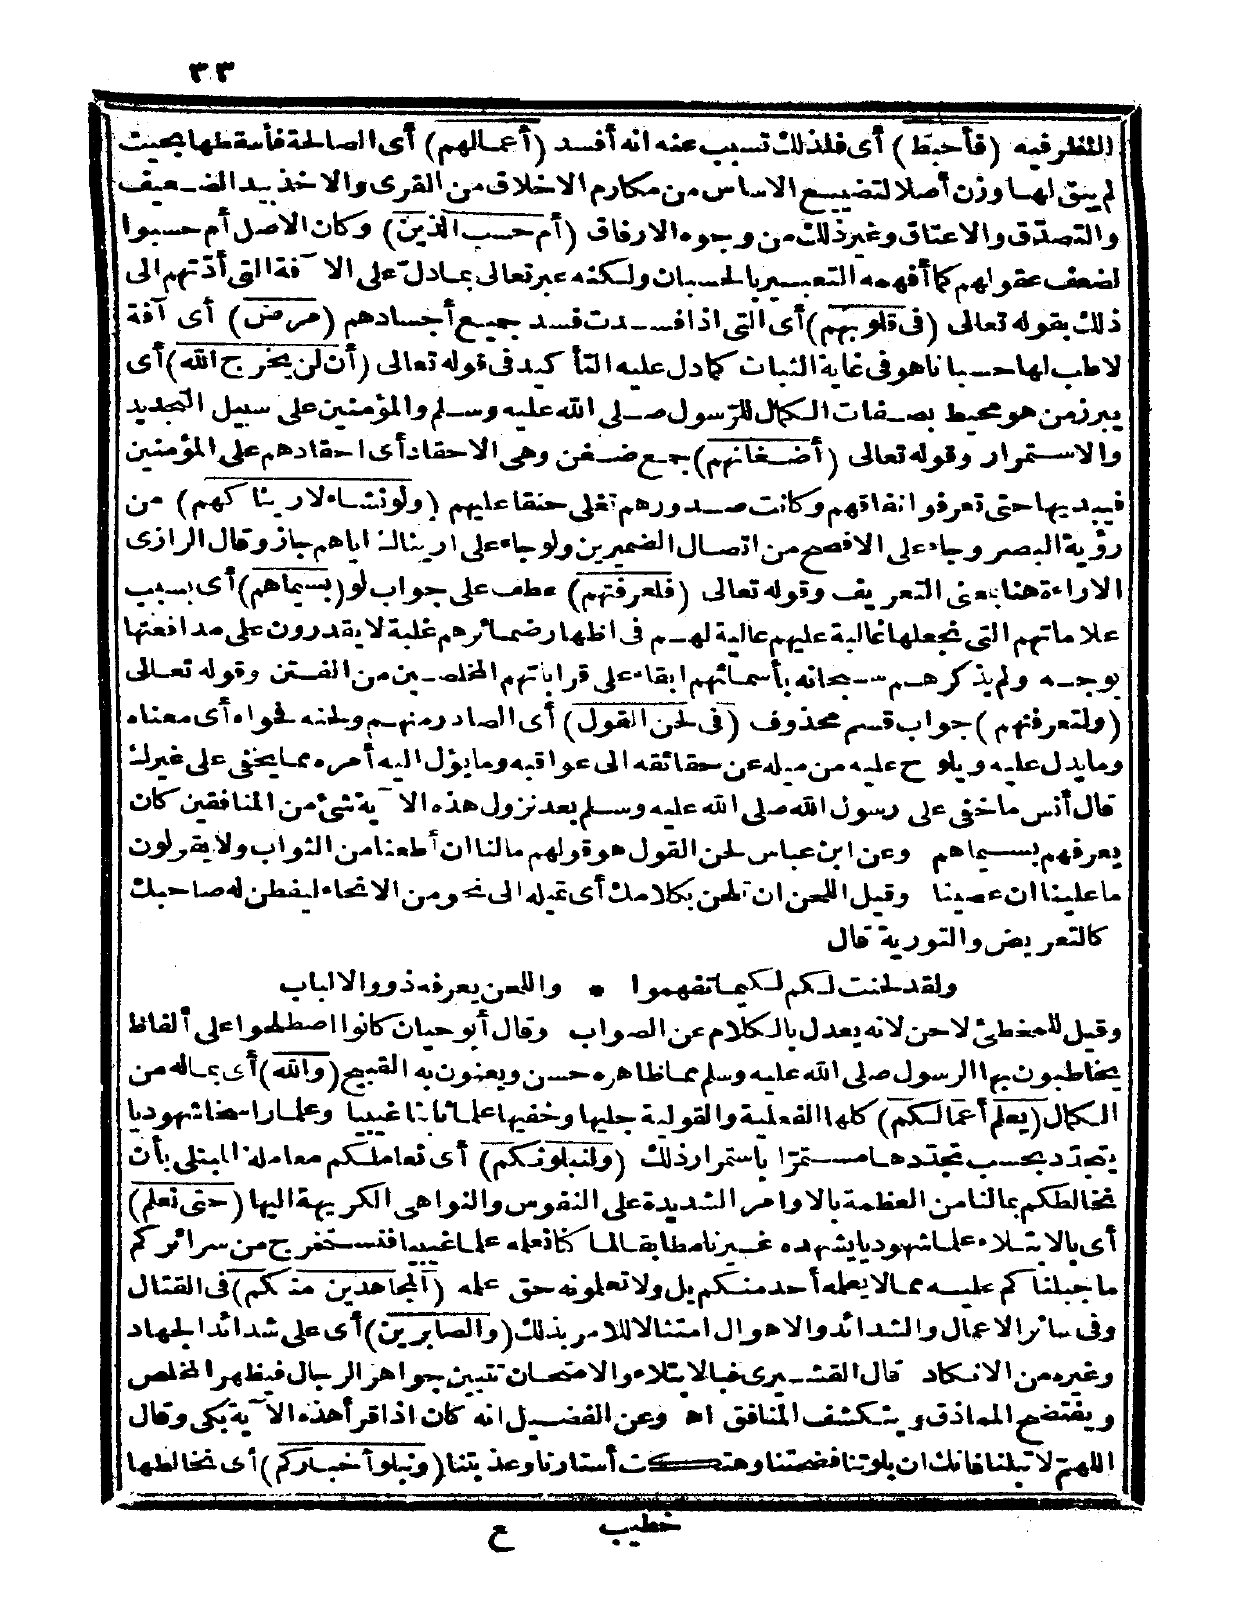 ٣٣
النظر فيه (فأحبط) أى فلذلك تسبب عنه انه أفسد (أعمالهم) أى الصالحة فأسقطها بحيث
لم يبق لها وزن أصلا لتضييع الاساس من مكارم الاخلاق من القرى والاخذ بيد الضعيف
والتصدّق والاعتاق وغير ذلك من وجوه الارفاق (أم حسب الذين) وكان الاصل أم حسبوا
لضعف عقولهم كما أفهمه التعبير بالحسبان ولكنه عبر تعالى بما دلّ على الآفة التى أدّتهم الى
ذلك بقوله تعالى (فى قلوبهم) أى التى اذا فسدت فسد جميع أجسادهم (مرض) أى آفة
لا طب لها حسبانا هو فى غاية الثبات كما دل عليه التأكيد فى قوله تعالى (أن لن يخرج الله) أى
يبرز من هو محيط بصفات الكمال للرّسول صلى الله عليه وسلم والمؤمنين على سبيل التجديد
والاستمرار وقوله تعالى (أضغانهم) جمع ضغن وهى الاحقاد أى احقادهم على المؤمنين
فيبديها حتى تعرفوا نفاقهم وكانت صدورهم تغلى حنقا عليهم (ولو نشاء لاريناكهم) من
رؤية البصر وجاء على الافصح من اتصال الضميرين ولو جاء على اريناك اياهم جاز وقال الرازى
الاراءة هنا بمعنى التعريف وقوله تعالى (فلعرفتهم) عطف على جواب لو (بسيماهم) أى بسبب
علاماتهم التى نجعلها غالبة عليهم عالية لهم فى اظهار ضمائرهم غلبة لا يقدرون على مدافعتها
بوجه ولم يذكرهم سبحانه بأسمائهم ابقاء على قراباتهم المخلصين من الفتن وقوله تعالى
(ولتعرفنهم) جواب قسم محذوف (فى لحن القول) أى الصادر منهم ولحنه فحواه أى معناه
وما يدل عليه ويلوح عليه من ميله عن حقائقه الى عواقبه وما يؤل اليه أمره مما يخفى على غيرك
قال أنس ما خفى على رسول الله صلى الله عليه وسلم بعد نزول هذه الآية شئ من المنافقين كان
يعرفهم بسيماهم وعن ابن عباس لحن القول هو قولهم مالنا ان أطعنا من الثواب ولا يقولون
ما علينا ان عصينا وقيل اللحن ان تلحن بكلامك أى تميله الى نحو من الانحاء ليفطن له صاحبك
كالتعريض والتورية قال
ولقد لحنت لكم لكيما تفهموا * واللحن يعرفه ذوو الالباب
وقيل للمخطئ لاحن لانه يعدل بالكلام عن الصواب وقال أبو حيان كانوا اصطلحوا على ألفاظ
يخاطبون بها الرسول صلى الله عليه وسلم مما ظاهره حسن ويعنون به القبيح (والله) أى بماله من
الكمال (يعلم أعمالكم) كلها الفعلية والقولية جليها وخفيها علما ثابتا غيبيا وعلما راسخا شهوديا
يتجدّد بحسب تجدّدها مستمرّا باستمرار ذلك (ولنبلونكم) أى نعاملكم معاملة المبتلى بأن
نخالطكم بمالنا من العظمة بالاوامر الشديدة على النفوس والنواهى الكريهة اليها (حتى نعلم)
أى بالابتلاء علما شهوديا يشهده غيرنا مطابقا لما كنا نعلمه علما غيبيا فنستخرج من سرائركم
ما جبلناكم عليه مما لا يعلمه أحد منكم بل ولا تعلمونه حق علمه (المجاهدين منكم) فى القتال
وفى سائر الاعمال والشدائد والاهوال امتثالا للامر بذلك (والصابرين) أى على شدائد الجهاد
وغيره من الانكاد قال القشيرى فبالابتلاء والامتحان تتبين جواهر الرجال فيظهر المخلص
ويفتضح المماذق وينكشف المنافق اه وعن الفضيل انه كان اذا قرأ هذه الآية بكى وقال
اللهمّ لا تبلنا فانك ان بلوتنا فضحتنا وهتكت أستارنا وعذبتنا (ونبلوا أخباركم) أى نخالطها
خطيب ع